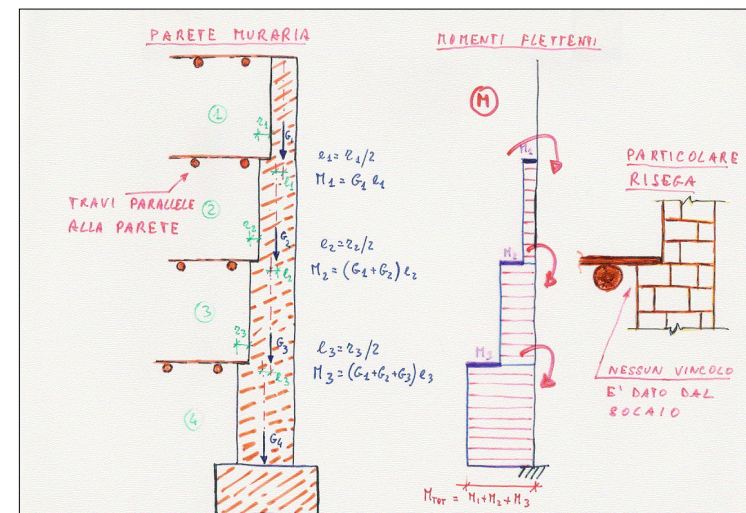 PARETE MURARIA
MOMENTI FLETTENTI
1
r1
G1
e1
e1 = r1/2
M1 = G1 e1
TRAVI PARALLELE
ALLA PARETE
2
r2
G2
e2
e2 = r2/2
M2 = (G1+G2) e2
3
r3
G3
e3
e3 = r3/2
M3 = (G1+G2+G3) e3
4
G4
M
M1
M2
M3
MTOT = M1+M2+M3
PARTICOLARE
RISEGA
NESSUN VINCOLO
E' DATO DAL
SOLAIO